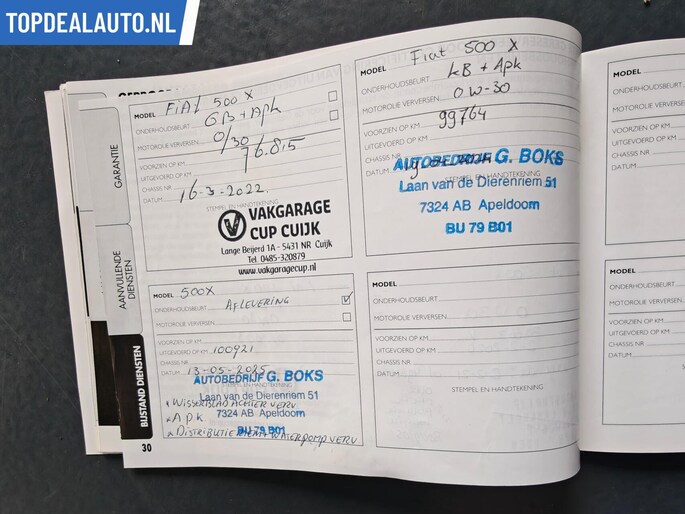 TOPDEALAUTO.NL
GARANTIE
AANVULLENDE
DIENSTEN
BIJSTAND DIENSTEN
MODEL FIAT 500 X
ONDERHOUDSBEURT GB + APK
MOTOROLIE VERVERSEN 0/30
VOORZIEN OP KM
UITGEVOERD OP KM 76.815
CHASSIS NR
DATUM 16-3-2022.
STEMPEL EN HANDTEKENING
VAKGARAGE
CUP CUIJK
Lange Beijerd 1A - 5431 NR Cuijk
Tel. 0485-320879
www.vakgaragecup.nl
MODEL Fiat 500 X
ONDERHOUDSBEURT KB + Apk
MOTOROLIE VERVERSEN 0W-30
VOORZIEN OP KM
UITGEVOERD OP KM 99764
CHASSIS NR
DATUM
AUTOBEDRIJF G. BOKS
STEMPEL EN HANDTEKENING
Laan van de Dierenriem 51
7324 AB Apeldoorn
BU 79 B01
MODEL 500X
ONDERHOUDSBEURT AFLEVERING
MOTOROLIE VERVERSEN
VOORZIEN OP KM
UITGEVOERD OP KM 100921
CHASSIS NR
DATUM 13-05-2025
AUTOBEDRIJF G. BOKS
STEMPEL EN HANDTEKENING
Laan van de Dierenriem 51
7324 AB Apeldoorn
BU 79 B01
* WISSERBLAD ACHTER VERV.
* APK.
* DISTRIBUTIERIEM + WATERPOMP VERV
30
MODEL
ONDERHOUDSBEURT
MOTOROLIE VERVERSEN
VOORZIEN OP KM
UITGEVOERD OP KM
CHASSIS NR
DATUM
STEMPEL EN HANDTEKENING
MODEL
ONDERHOUDSBEURT
MOTOROLIE VERVERSEN
VOORZIEN OP KM
UITGEVOERD OP KM
CHASSIS NR
DATUM
MODEL
ONDERHOUDSBEURT
MOTOROLIE VERVERSEN
VOORZIEN OP KM
UITGEVOERD OP KM
CHASSIS NR
DATUM